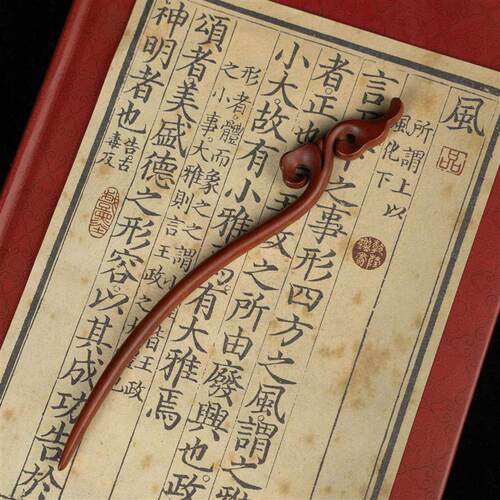 風
所謂上以
風化下
言
之事形四方之風謂之
者正也
之所由廢興也政
小大故有小雅焉有大雅焉
形者體而象之之謂
之小事大雅則言王政之
頌者美盛德之形容以其成功告於
神明者也
告古
毒反